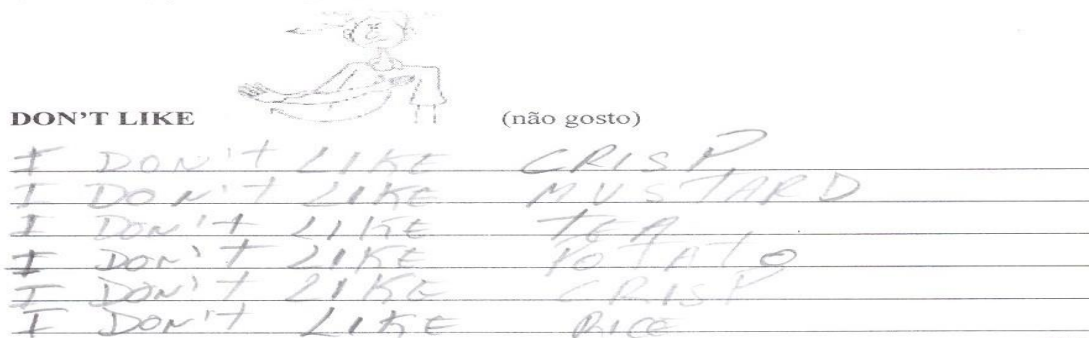 DON'T LIKE (não gosto)
I DON'T LIKE CRISP
I DON'T LIKE MUSTARD
I DON'T LIKE TEA
I DON'T LIKE POTATO
I DON'T LIKE CRISP
I DON'T LIKE RICE